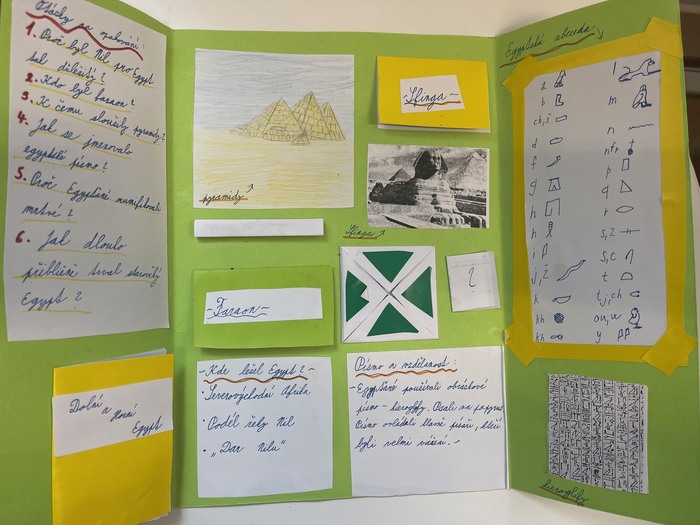 Otázky na opakování:
1. Proč byl Nil pro Egypt
tak důležitý?
2. Kdo byl faraon?
3. K čemu sloužily pyramidy?
4. Jak se jmenovalo
egyptské písmo?
5. Proč Egypťané mumifikovali
mrtvé?
6. Jak dlouho
přibližně trval starověký
Egypt?
Dolní a Horní
Egypt
pyramidy
~Sfinga~
Sfinga
~Faraon~
?
~Kde ležel Egypt?~
Severovýchodní Afrika
• Podél řeky Nil
• "Dar Nilu"
Písmo a vzdělanost:
- Egypťané používali obrázkové
písmo - hieroglyfy. Psali na papyrus
Písmo ovládali hlavně písaři, kteří
byli velmi vážení.
Egyptská abeceda
a
b
ch, š
d
f
g
h
h
i
j, ž
k
k
kh
l
m
n
nfr
p
q
r
s, z
s, c
t
tj, ch
ou, w
y
hieroglify